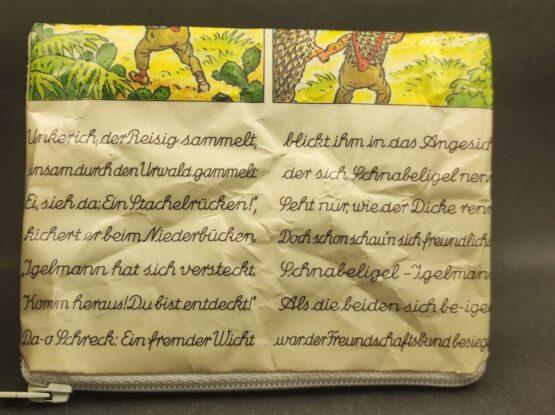 Unkerich, der Reisig sammelt,
insam durch den Urwald gammelt
Ei, sieh da: Ein Stachelrücken!",
kichert er beim Niederbücken.
„Igelmann hat sich versteckt.
Komm heraus! Du bist entdeckt!"
Da-o Schreck: Ein fremder Wicht
blickt ihm in das Angesich
der sich Schnabeligel nenn
Seht nur, wie der Dicke renn
Doch schon schau'n sich freundlich
Schnabeligel-Igelmann
Als die beiden sich be-igel
war der Freundschaftsbund besieg